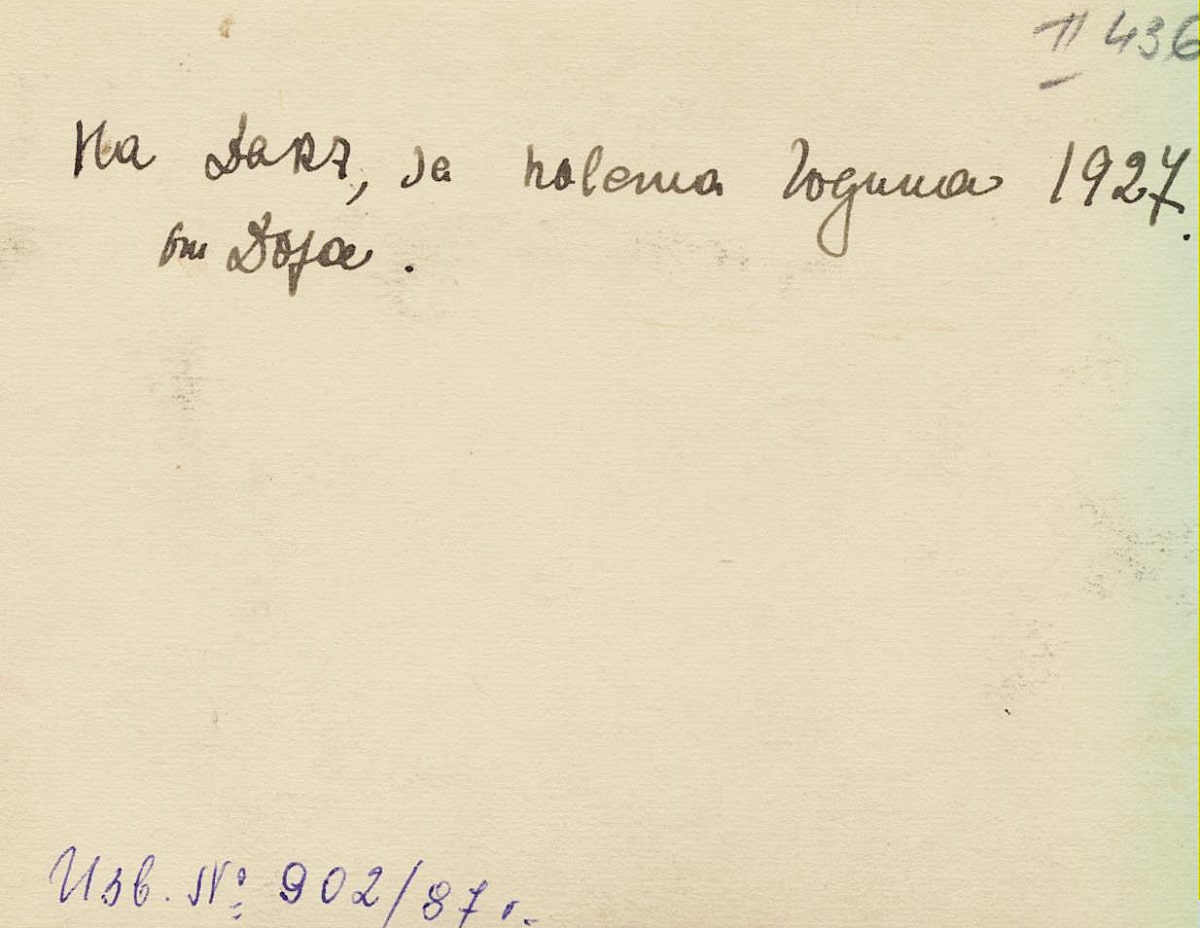 II 436
На за новата година 1927.
от Дора.
Инв. № 902/87 г.